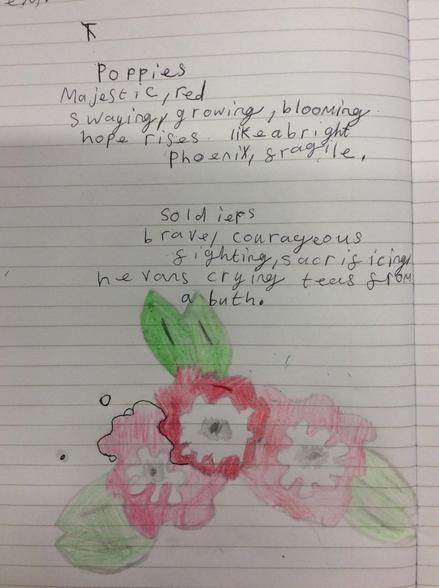 Poppies
Majestic, red
swaying, growing, blooming
hope rises like a bright
phoenix, fragile.
Soldiers
brave, courageous
fighting, sacrificing
hevans crying teas from
a buth.